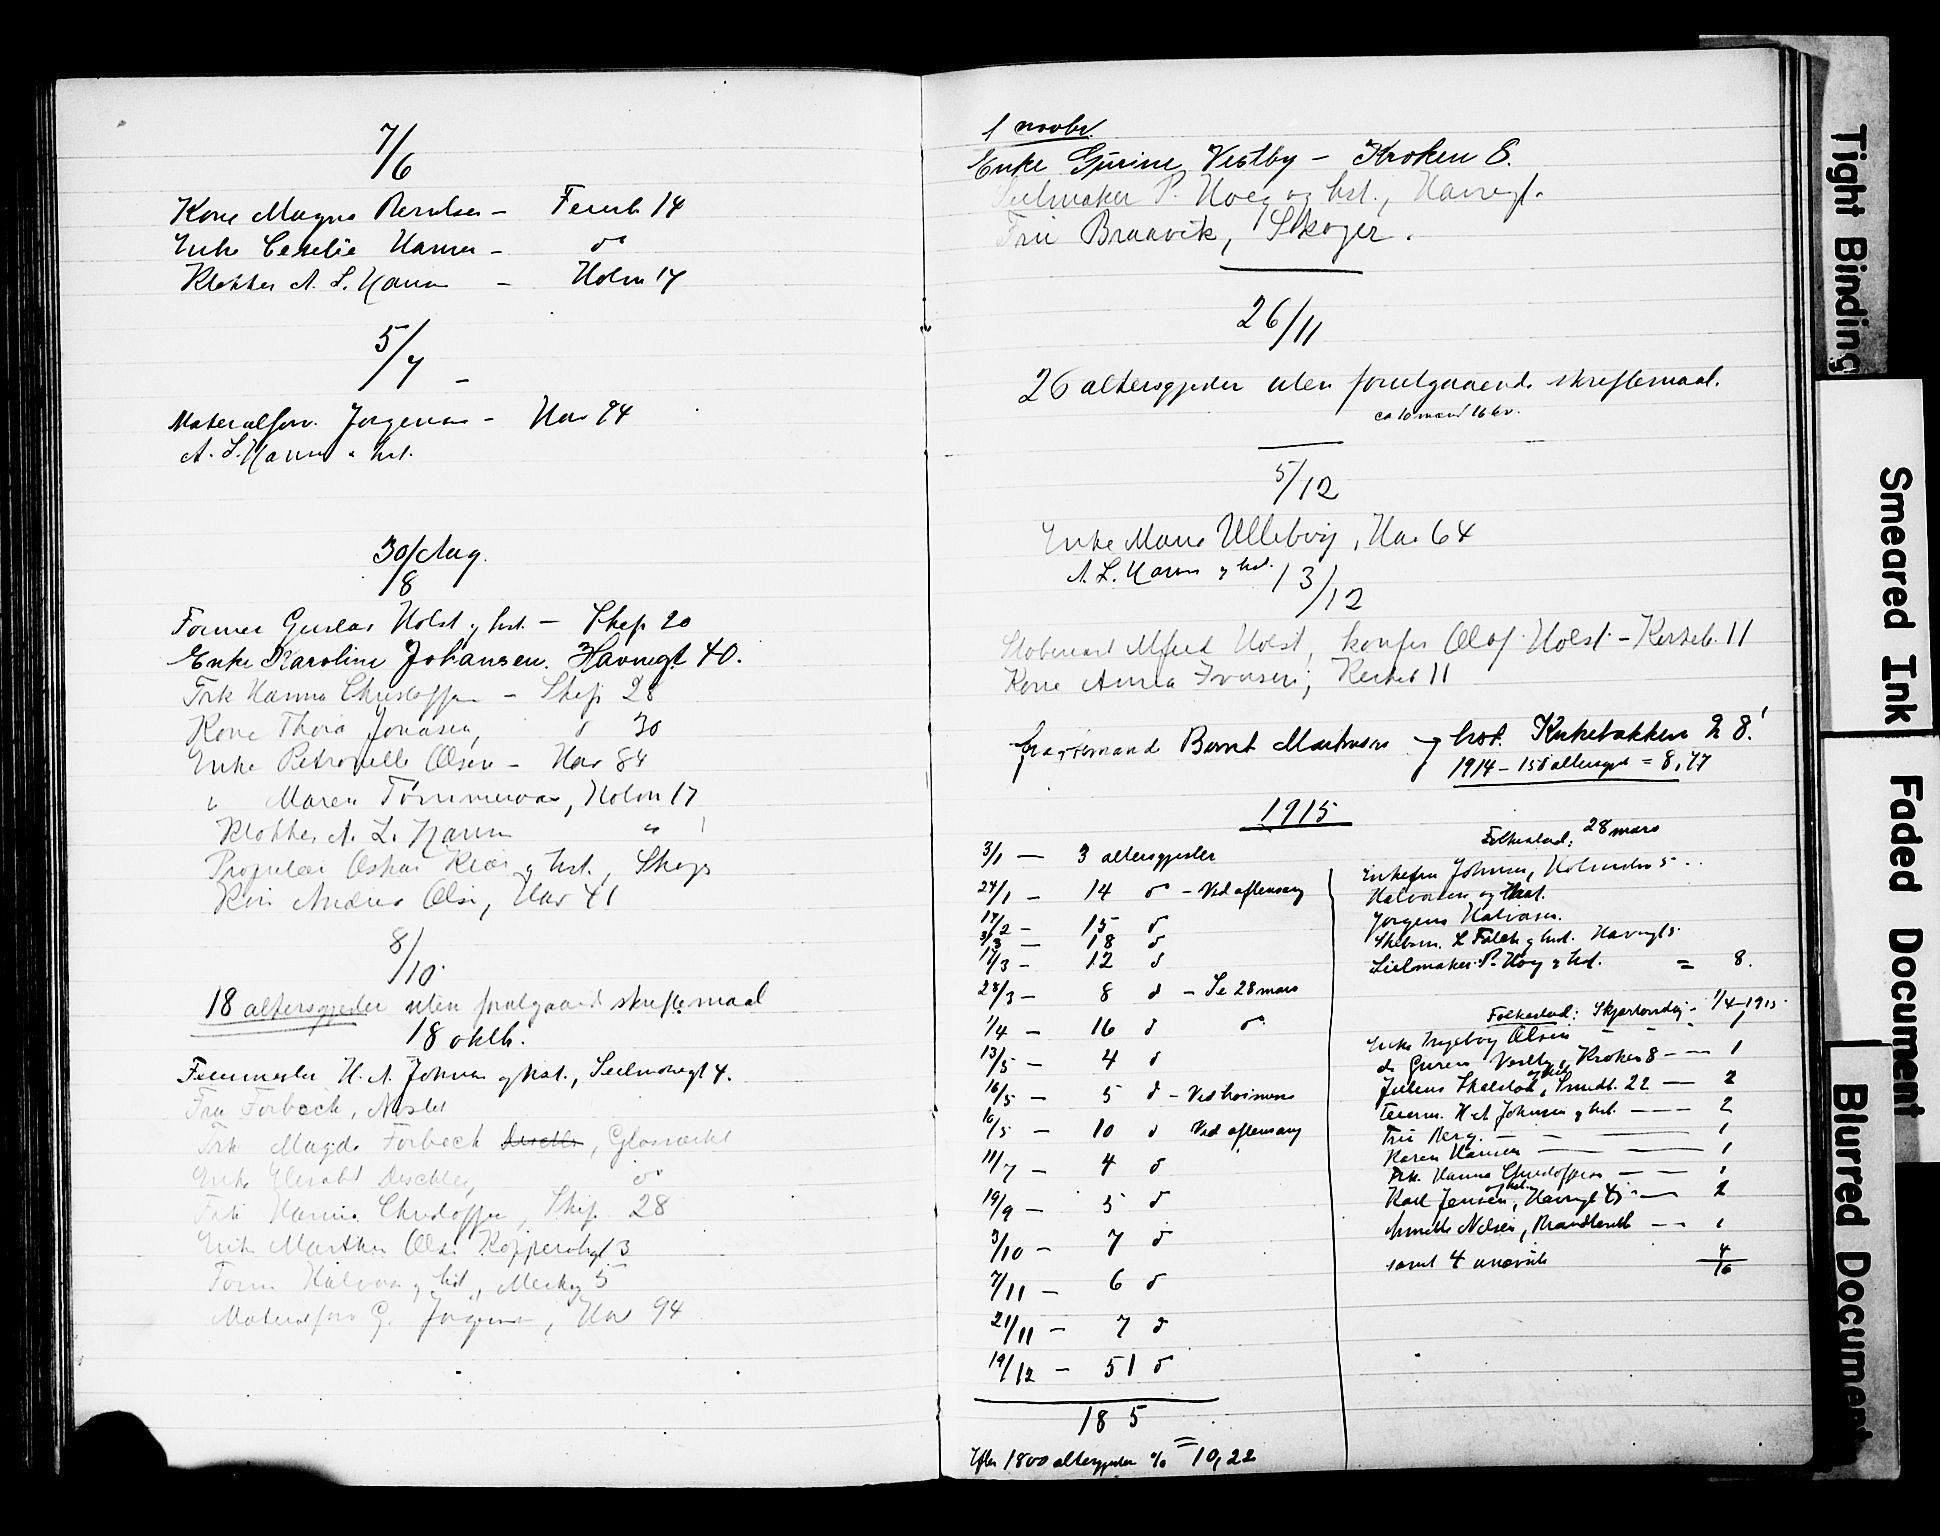 7/6
Kone Magna Berntsen – Feierb 14
Enke Cecelie Hansen – do
Klokker A. L. Hansen – Holm 17
5/7 –
Materialforv. Jørgensen – Hav 94
A. L. Hansen " hst.
30/8 Aug.
Former Gustav Holst og hst. – Skep. 20
Enke Karoline Johansen. Havnegt 40.
Frk Hanna Christoffersen – Skep. 28
Kone Thora Jonasen, d 30
Enke Petronelle Olsen – Hav 84
" Maren Tømmeraas, Holm 17
Klokker A. L. Hansen "
Proprietær Oskar Kiær og hst., Skoger
Kone Andrea Olsen, Hav 41
8/10
18 altersgjester uten forutgaaende skriftemaal
18 oktb.
Feiermester H. A. Johnsen og hst., Seilmakergt 4.
Fru Forbech, Nøsted
Frk Magda Forbech, Glasværket
Enke Elisabt Deschler, do
Frk Hanna Christoffersen, Skep. 28
Enke Marthea Olsen Kopperslagt 3
Form Halvorsen og hst,
Materialforv G. Jørgensen, Hav 94
1 novbr.
Enke Gurine Vestby – Kroken 8.
Seilmaker P. Hoeg og hst., Havnegt.
Fru Braavik, Skoger.
26/11
26 altersgjester uten forutgaaende skriftemaal.
ca 10 mænd 16 kv.
5/12
Enke Maria Ullebvig, Hav 64
A. L. Hansen og hst.
13/12
Alfred Holst, konfir Olof Holst – Kirkeb. 11
Kone Anna Iversen, Kirkeb 11
Bernt Martinsen og hst. Kirkebakken 28.
1914 – 158 altersgjest = 8,77
1915
3/1 — 3 altersgjester
24/1 – 14 do – Ved aftensang
14/2 – 15 d
3/3 — 18 d
17/3 – 12 d
28/3 – 8 d – Se 28 mars
1/4 – 16 d do
13/5 – 4 d
16/5 – 5 d – Ved høimesse
16/5 – 10 d Ved aftensang
11/7 – 4 d
19/9 – 5 d
3/10 – 7 d
7/11 – 6 d
21/11 – 7 d
19/12 – 51 d
185
Efter 1800 altersgjester % = 10,22
Folkestad: 28 mars
Enkefru Johnsen,
Halvorsen og Hst.
Jørgens Halvorsen.
L Falch og hst. Havnegt 5
Seilmaker P. Hoeg og hst. = 8.
Folkestad: Skjærtorsdag – 1/4 – 1915
Enke Ingeborg Olsen – – – 1
do Gurine Vestby, Kroken 8 – – 1
Julius Skolstad, Smedt. 22 — 2
Feierm. H. A Johnsen og hst. – – – 2
Fru Berg. – – 1
Karen Hansen – 1
Frk. Hanna Christoffersen — — 1
Karl Jensen og hst., Havnegt 45 – — 2
Annette Nilsen, – – 1
samt 4 4
16
Tight Binding
Smeared Ink
Faded Document
Blurred Document